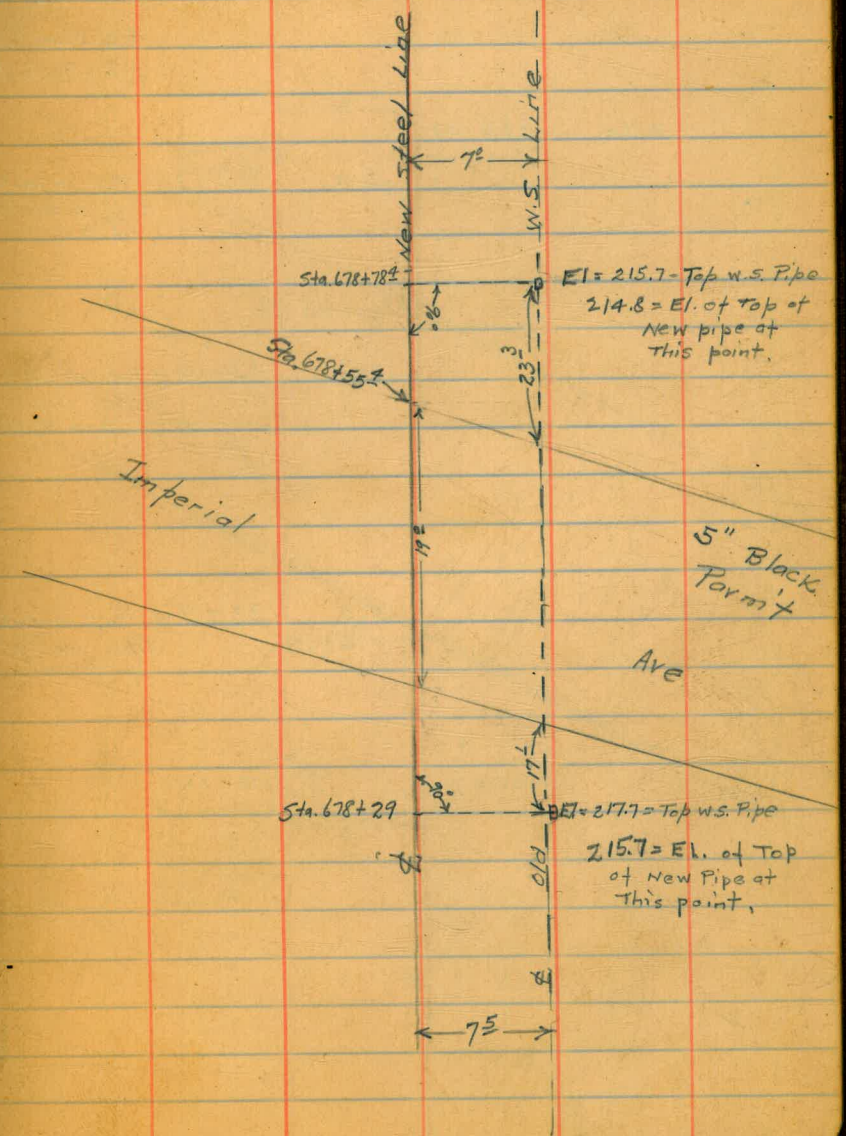 New Steel Line
W.S. Line
7º
Sta. 678+78⁴
El = 215.7 - Top w.s. Pipe
214.8 = El. of Top of
New pipe at
This point.
90°
Sta. 678+55⁴
23³
Imperial
19º
5" Black
Parm't
Ave
17¹
90°
Sta. 678+29
El = 217.7 = Top w.s. Pipe
215.7 = El. of Top
of New Pipe at
This point.
℄
Old
℄
7⁵